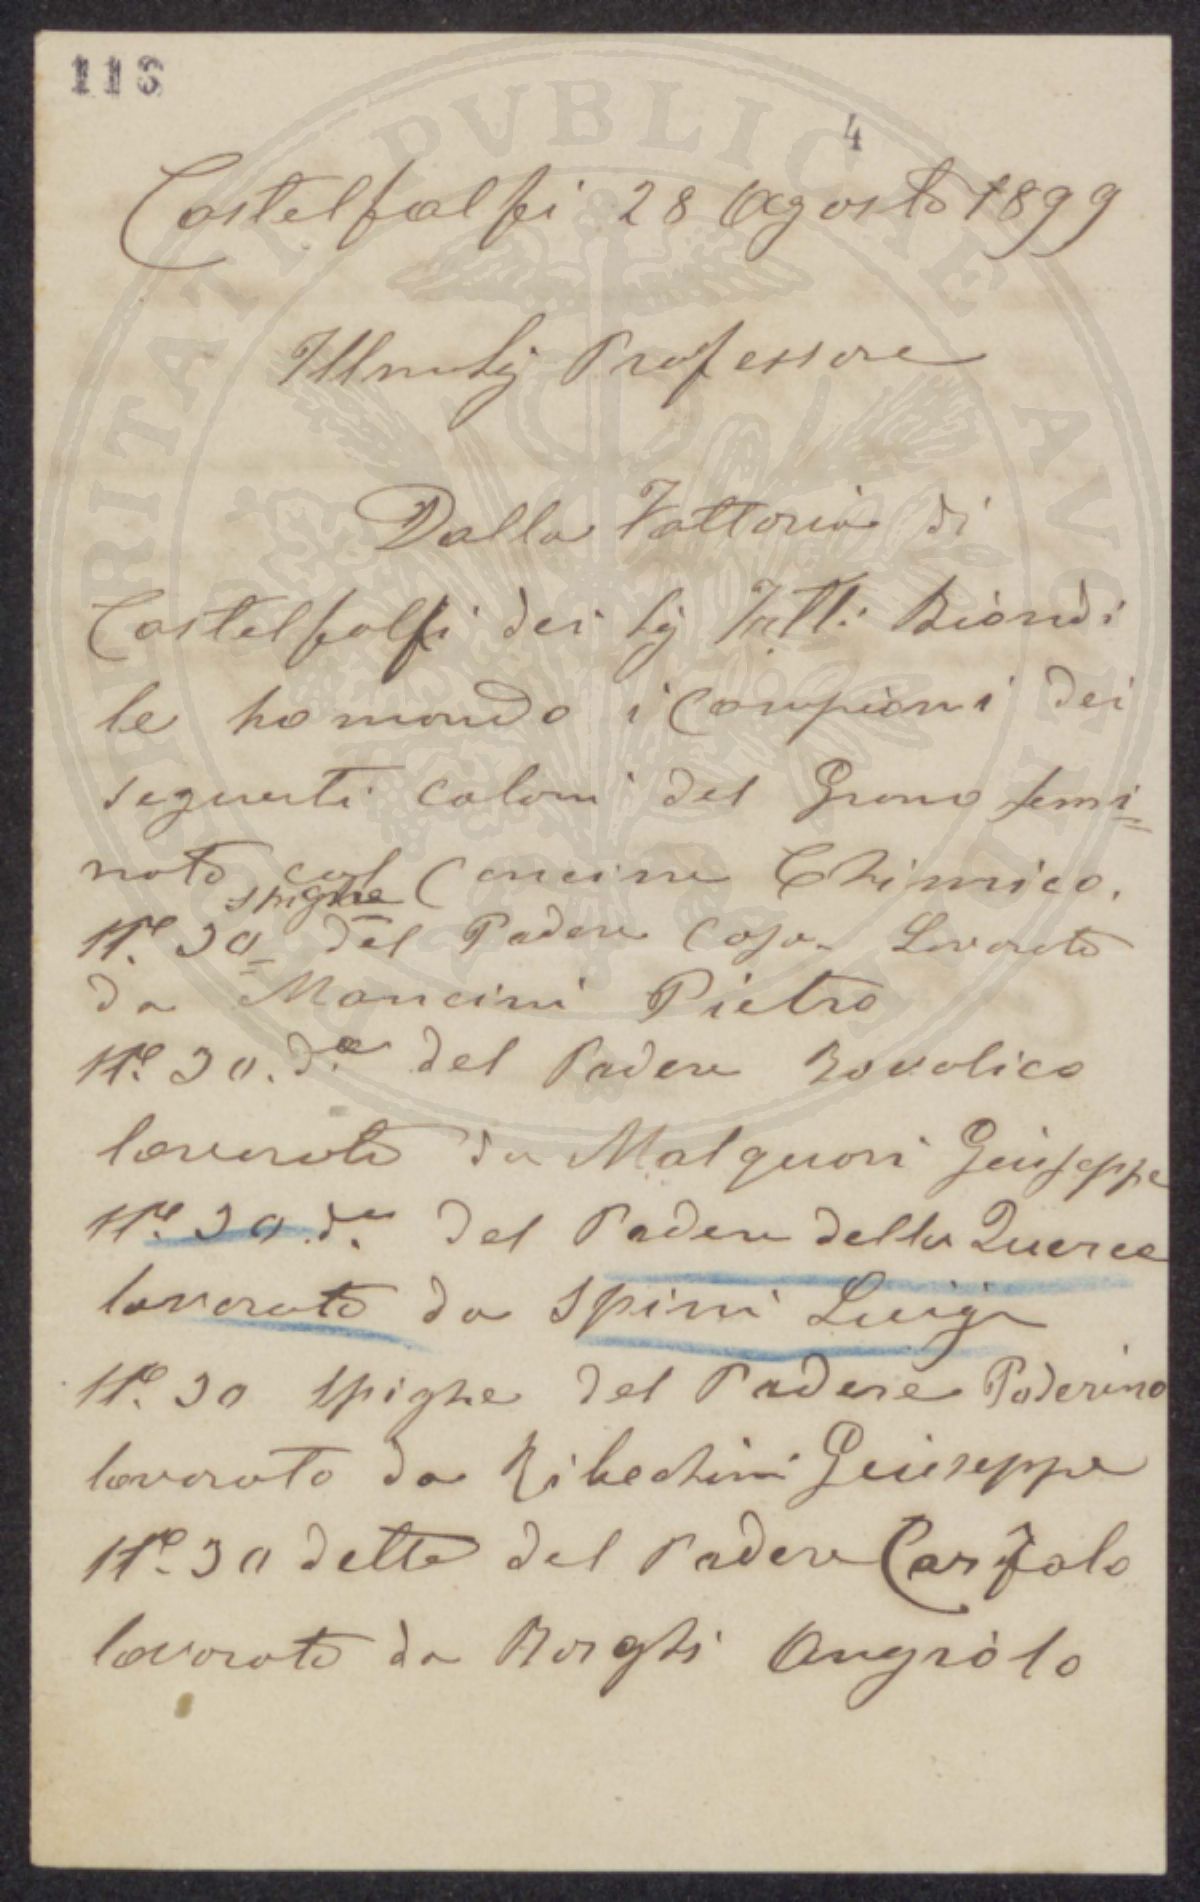 113
4
Castelfalfi 28 Agosto 1899
Illmo Sig Professore
Dalla Fattoria di
Castelfalfi dei Sig Fratlli Biondi
le ho mando i Campioni dei
seguenti coloni del Grano semi=
nato col Concime Chimico.
spighe
N.º 30 = del Podere Casa Lavorato
da Mancini Pietro
N.º 30. d.e del Podere
lavorato da Malquori Giuseppe
N.º 30 d.e del Podere della Querce
lavorato da Spini Luigi
N.º 30 spighe del Podere Poderino
lavorato da Ribechini Giuseppe
N.º 30 dette del Podere Carfalo
lavorato da Borghi Angiolo
PVBLICAE